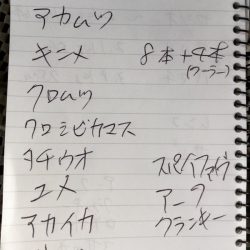 アカムツ
キンメ 8本+4本
(クーラー)
クロムツ
クロシビカマス
タチウオ スパイファイブ
ユメ アーク
アカイカ クランキー